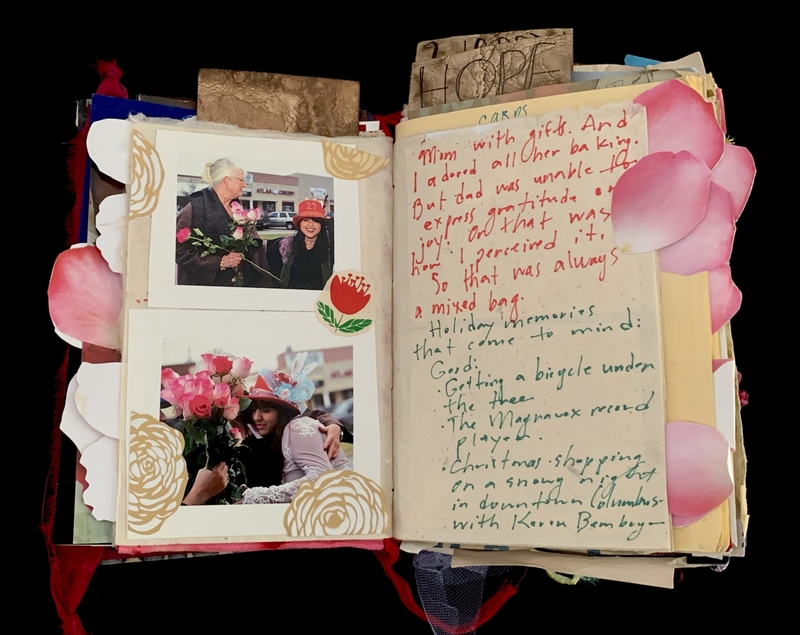 ATLAS CREDIT
HOPE
CARDS
Mom with gifts. And
I adored all her baking.
But dad was unable to
express gratitude or
joy! Or that was
how I perceived it.
So that was always
a mixed bag.
Holiday memories
that come to mind:
Good:
• Getting a bicycle under
the tree
• The Magnavox record
player.
• Christmas shopping
on a snowy night
in downtown Columbus-
with Karen